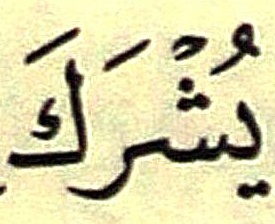 يُشْرَكَ